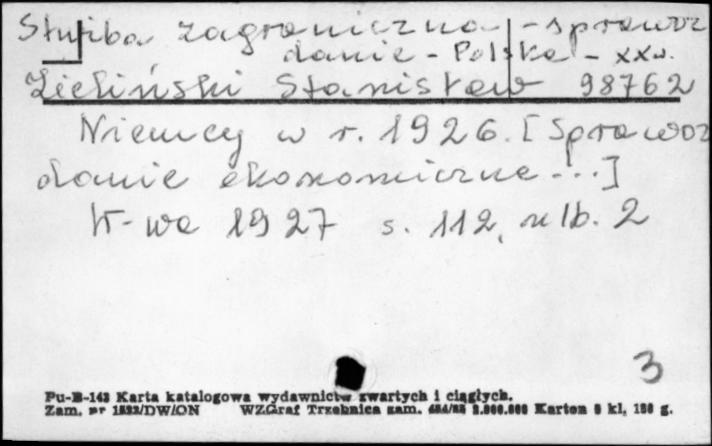 Służba zagraniczna - sprawoz
danie - Polska - XX w.
Zieliński Stanisław 98762
Niemcy w r. 1926. [Sprawoz
danie ekonomiczne...]
W-wa 1927 s. 112, nlb. 2
3
Pu-B-143 Karta katalogowa wydawnictw zwartych i ciągłych.
Zam. nr 1522/DW/ON WZGraf Trzebnica zam. 2.000.000 Karton 3 kl, 180 g.